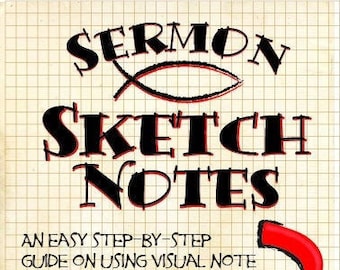 SERMON
SKETCH
NOTES
AN EASY STEP-BY-STEP
GUIDE ON USING VISUAL NOTE